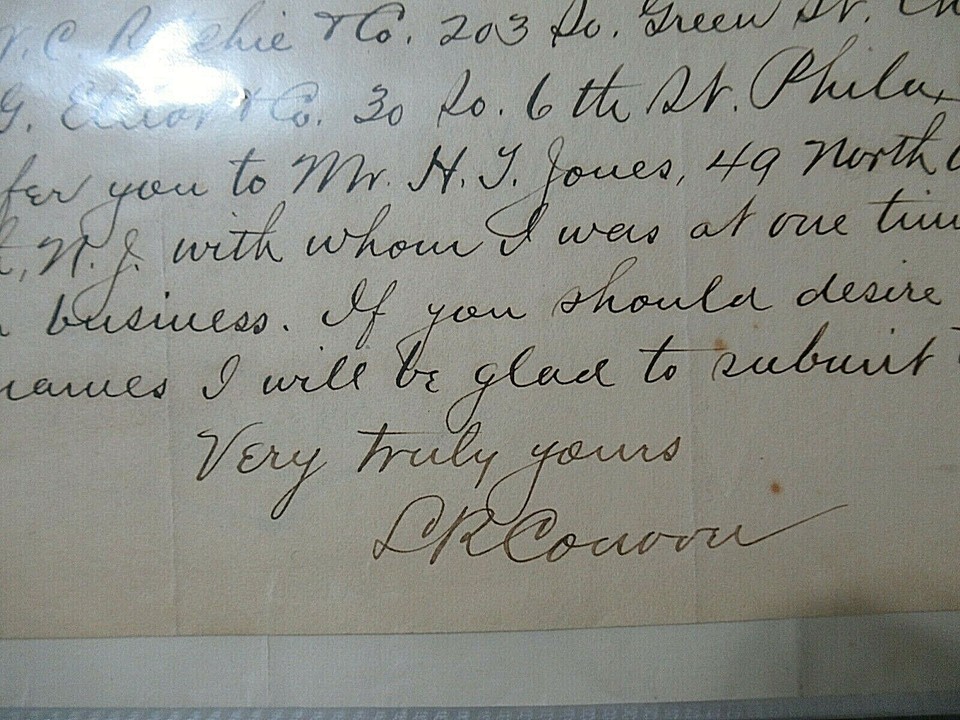 W. C. Ritchie & Co. 203 So. Green St. Ch
G. Elliot & Co. 30 So. 6th St. Phila.
fer you to Mr. H. T. Jones, 49 North
N. J. with whom I was at one tim
business. If you should desire
names I will be glad to submit
Very truly yours
L R Conover